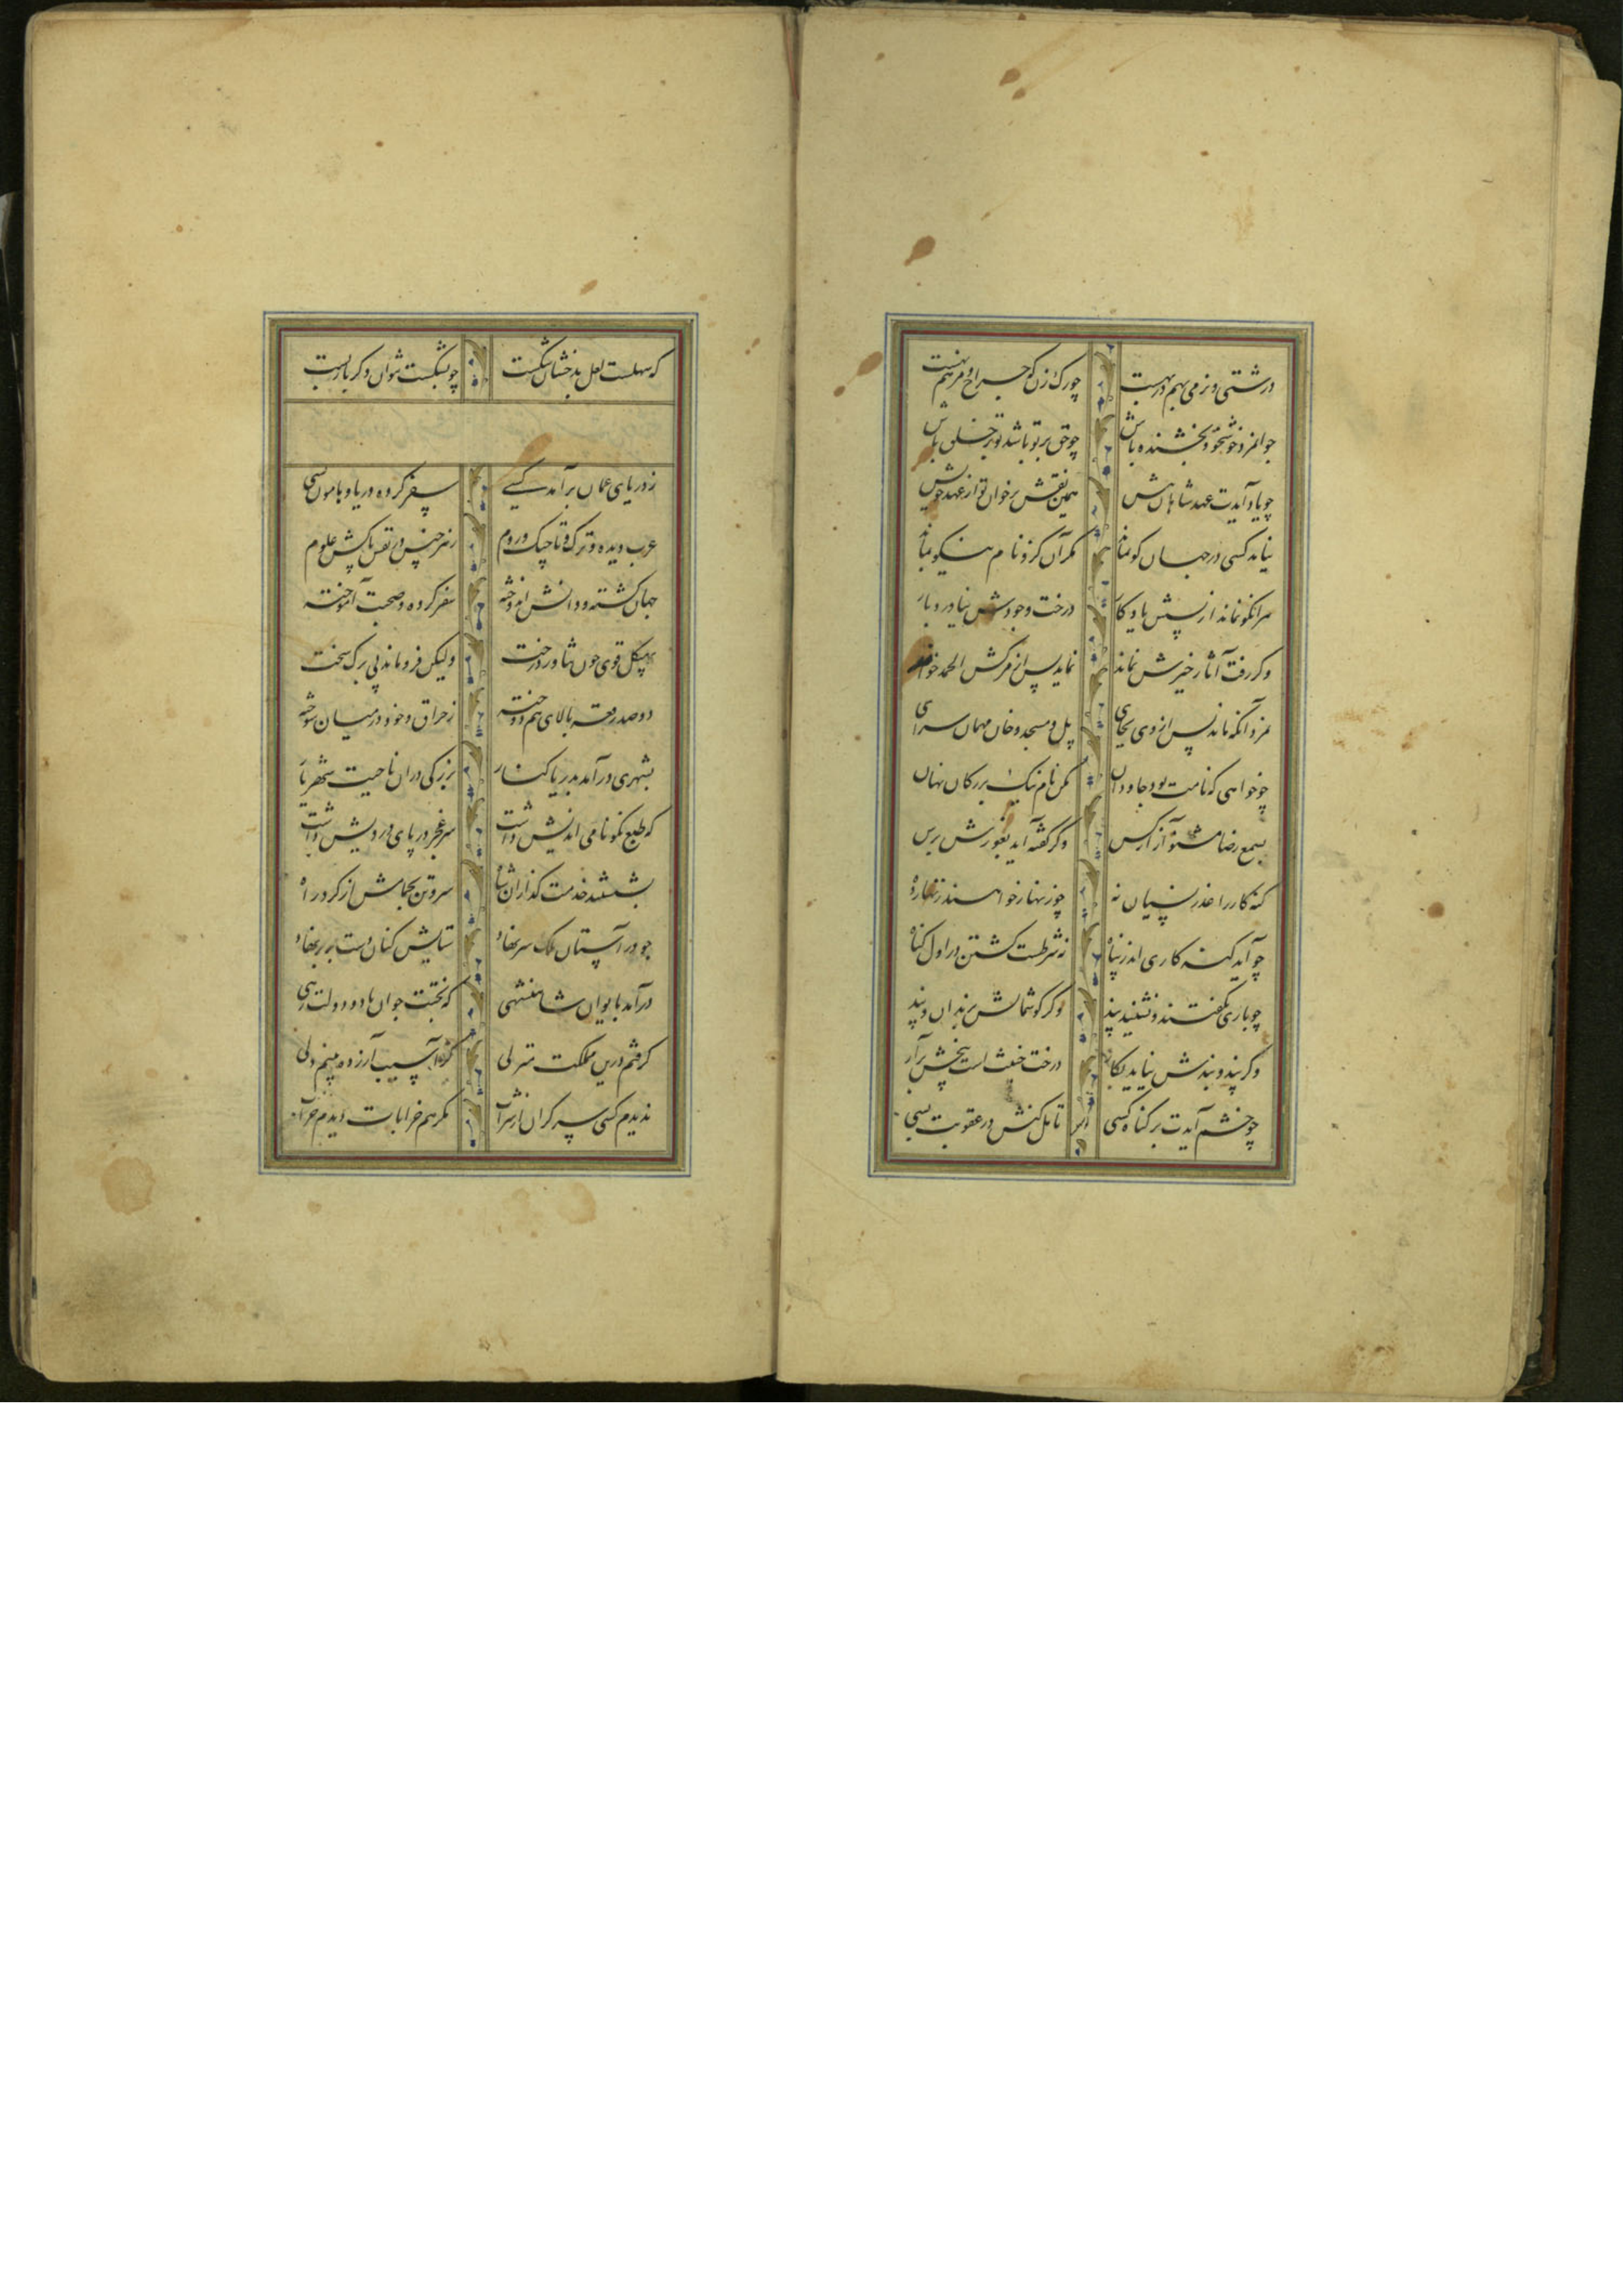 درشتی و نرمی بهم در بهست چو رک زن که جراح و مرهم نهست
جوانمرد و خوشخو و بخشنده باش چو حق بر تو باشد تو بر خلق باش
چو یاد آیدت عهد شاهان پیش همین نقش برخوان تو از عهد خویش
نیامد کسی در جهان کو بماند مکر آن کزو نام نیکو بماند
هر انکو نماند از پسش یادکار درخت وجودش نیاورد بار
وکر رفت آثار خیرش نماند نماند پس از مرکش الحمد خواند
نمرد آنکه ماند پس از وی بجای پل و مسجد و خان و مهمان سرای
چو خواهی که نامت بود جاودان مکن نام نیک بزرکان نهان
بسمع رضا مشنو آزار کس وکر کفته آید بغورش برس
کنه کار را عذر نسیان نه چو زنهار خواهند زنهار ده
چو آید کنه کاری اندر پناه نه شرطست کشتن در اول کناه
چو باری بکفتند و نشنید پند وکر کوشمالش بزندان و بند
وکر پند و بندش نیاید بکار درخت خبیث است بیخش برآر
چو خشم آیدت بر کناه کسی تامل کنش در عقوبت بسی
که سهلست لعل بدخشان شکست چو بشکست نتوان دکر باره بست
ز دریای عمان برآمد کسی سفر کرده دریا و هامون بسی
عرب دیده و ترک و تاجیک و روم ز هر جنس در نفس پاکش علوم
جهان کشته و دانش اندوخته سفر کرده و صحبت آموخته
بهیکل قوی چون تناور درخت ولیکن فرومانده بی برک سخت
دو صد رقعه بالای هم دوخته ز حراق و خود در میان سوخته
بشهری درآمد ز دریا کنار بزرکی در ان ناحیت شهریار
که طبع نکونامی اندیش داشت سر عجز در پای درویش داشت
بشستند خدمت کذاران شاه سر و تن بحمامش از کرد راه
چو در آستان ملک سر نهاد ستایش کنان دست بر بر نهاد
درآمد بایوان شاهنشهی که بختت جوان باد و دولت رهی
نرفتم درین مملکت منزلی کز آسیب آزرده دیدم دلی
ندیدم کسی سر کران از شراب مکر هم خرابات دیدم خراب